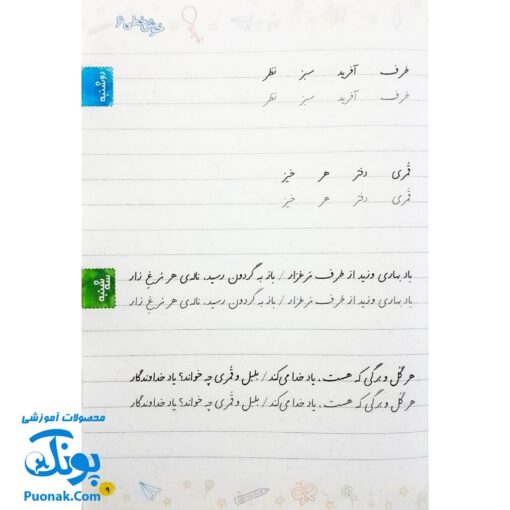 خوش‌خطی ۶
دوشنبه
طرف آفرید سبز نظر
طرف آفرید سبز نظر
قمری دفتر هر خیز
قمری دفتر هر خیز
سه‌شنبه
باد بهاری وزید از طرف مرغزار / باز به گردون رسید، ناله‌ی هر مرغ زار
باد بهاری وزید از طرف مرغزار / باز به گردون رسید، ناله‌ی هر مرغ زار
هر گل و برگی که هست، یاد خدا می‌کند / بلبل و قمری چه خواند؟ یاد خداوندگار
هر گل و برگی که هست، یاد خدا می‌کند / بلبل و قمری چه خواند؟ یاد خداوندگار
محصولات آموزشی
پونک
Puonak.Com
۹